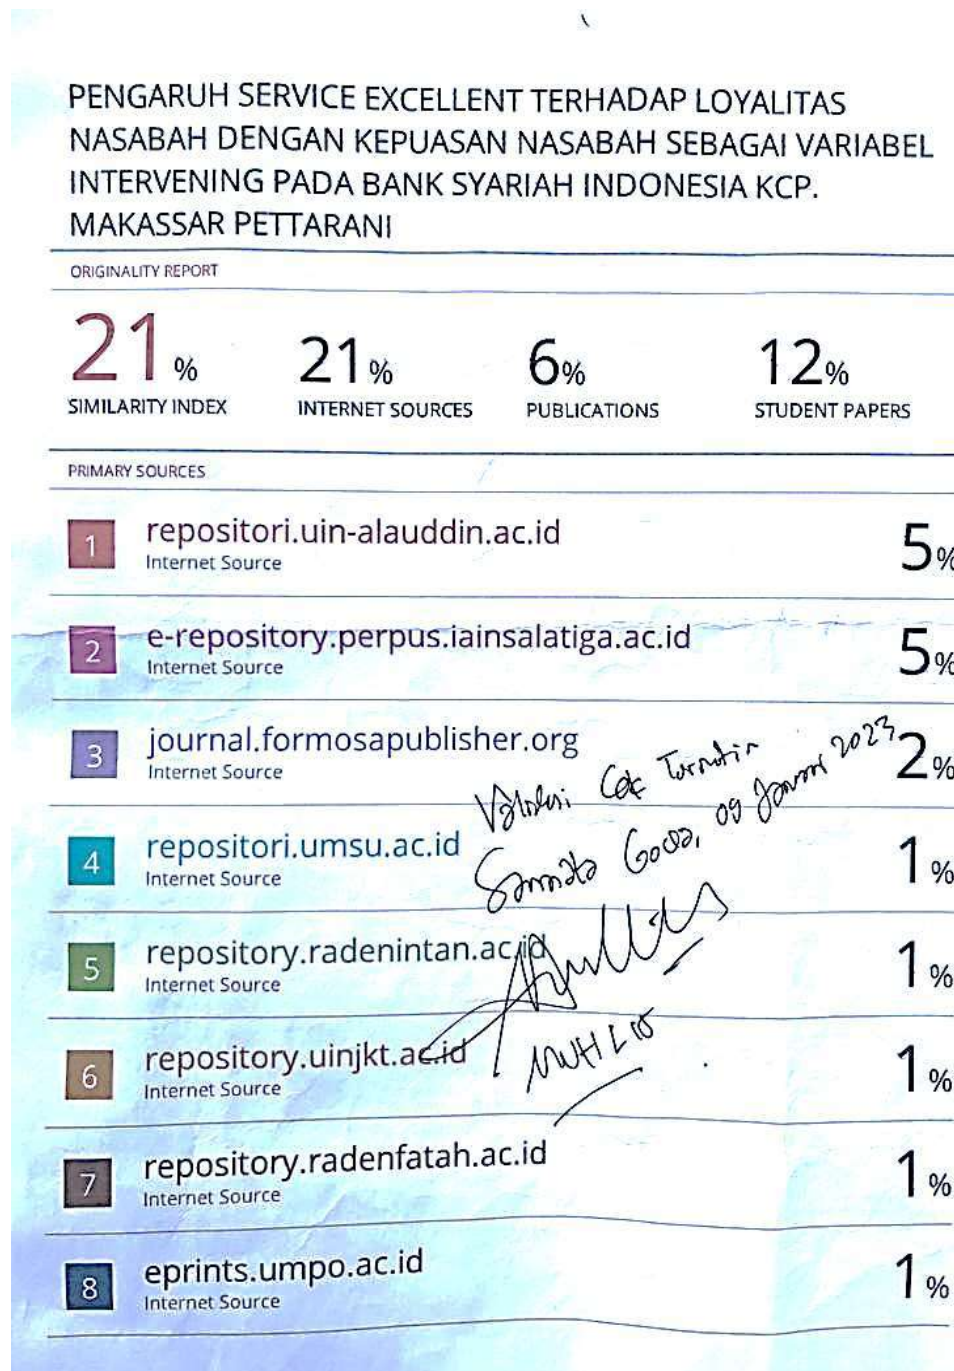 PENGARUH SERVICE EXCELLENT TERHADAP LOYALITAS
NASABAH DENGAN KEPUASAN NASABAH SEBAGAI VARIABEL
INTERVENING PADA BANK SYARIAH INDONESIA KCP.
MAKASSAR PETTARANI
ORIGINALITY REPORT
21% 21% 6% 12%
SIMILARITY INDEX INTERNET SOURCES PUBLICATIONS STUDENT PAPERS
PRIMARY SOURCES
1 repositori.uin-alauddin.ac.id 5%
Internet Source
2 e-repository.perpus.iainsalatiga.ac.id 5%
Internet Source
3 journal.formosapublisher.org 2%
Internet Source
Cek Turnitin
Gowa, 09 Januari 2023
4 repositori.umsu.ac.id 1%
Internet Source
5 repository.radenintan.ac.id 1%
Internet Source
6 repository.uinjkt.ac.id 1%
Internet Source
7 repository.radenfatah.ac.id 1%
Internet Source
8 eprints.umpo.ac.id 1%
Internet Source